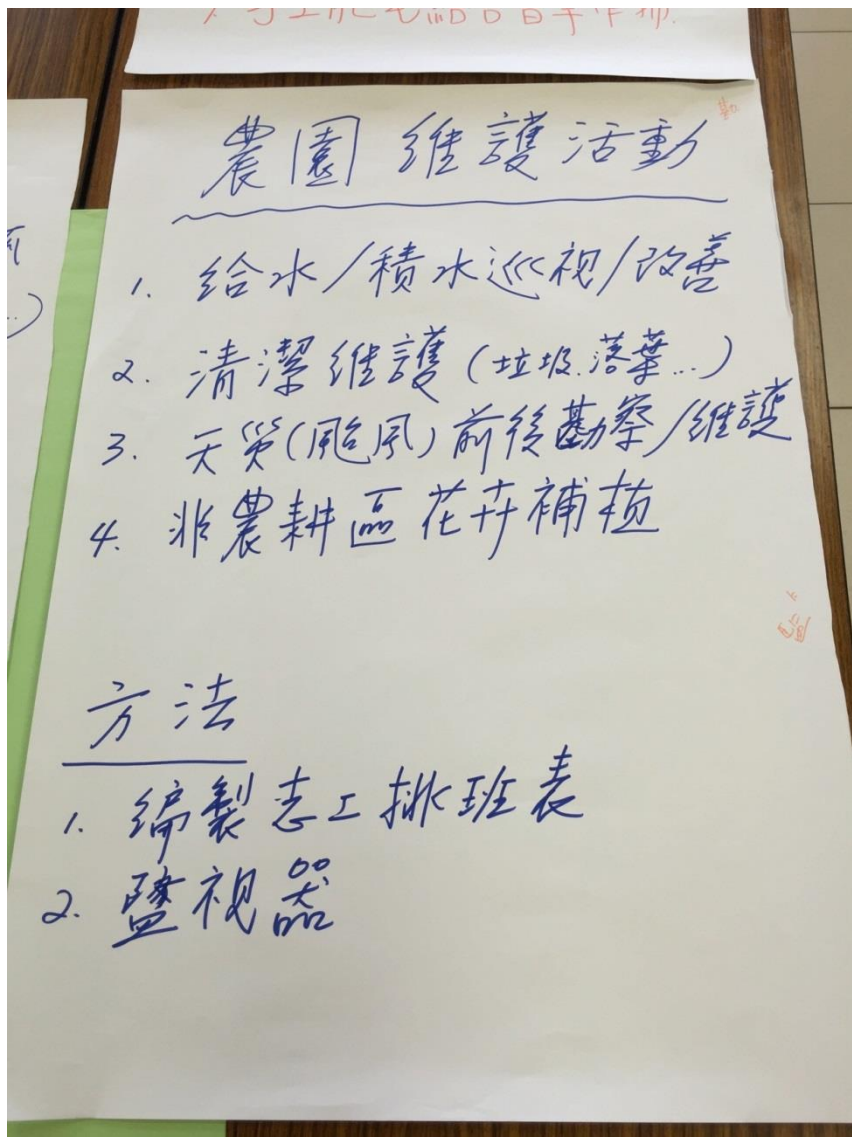 農園維護活動
1. 给水/積水巡視/改善
2. 清潔維護(垃圾.落葉...)
3. 天災(颱風)前後勘察/維護
4. 非農耕區花卉補植
方法
1. 编製志工排班表
2. 監視器